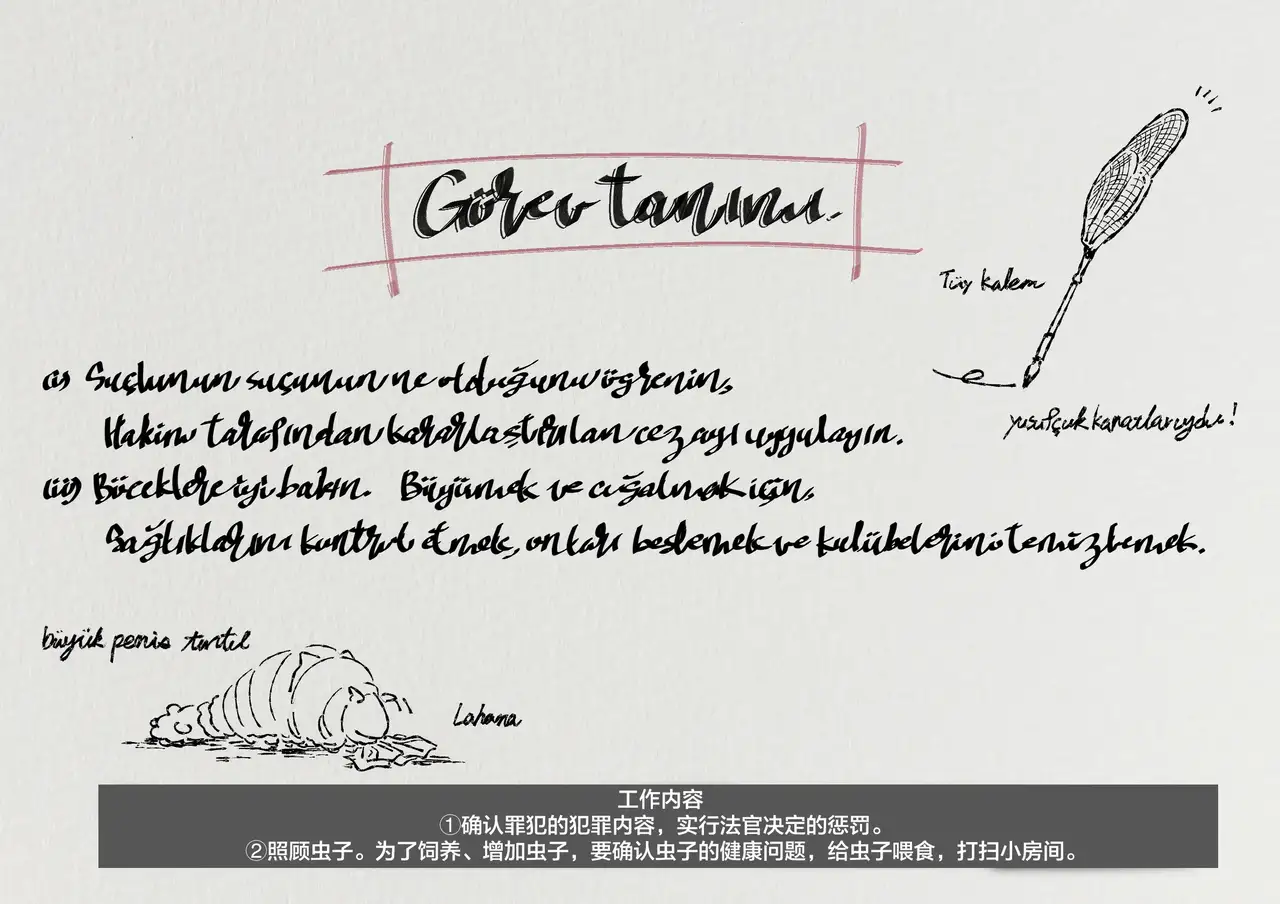 Görev tanımı.
Tüy kalem
yusufçuk kanatlarıydı!
(i) Suçlunun suçunun ne olduğunu öğrenin,
Hakim tarafından kararlaştırılan cezayı uygulayın.
(ii) Böceklere iyi bakın. Büyümek ve çoğalmak için,
Sağlıklarını kontrol etmek, onları beslemek ve kulübelerini temizlemek.
büyük penis tırtıl
Lahana
工作内容
①确认罪犯的犯罪内容，实行法官决定的惩罚。
②照顾虫子。为了饲养、增加虫子，要确认虫子的健康问题，给虫子喂食，打扫小房间。